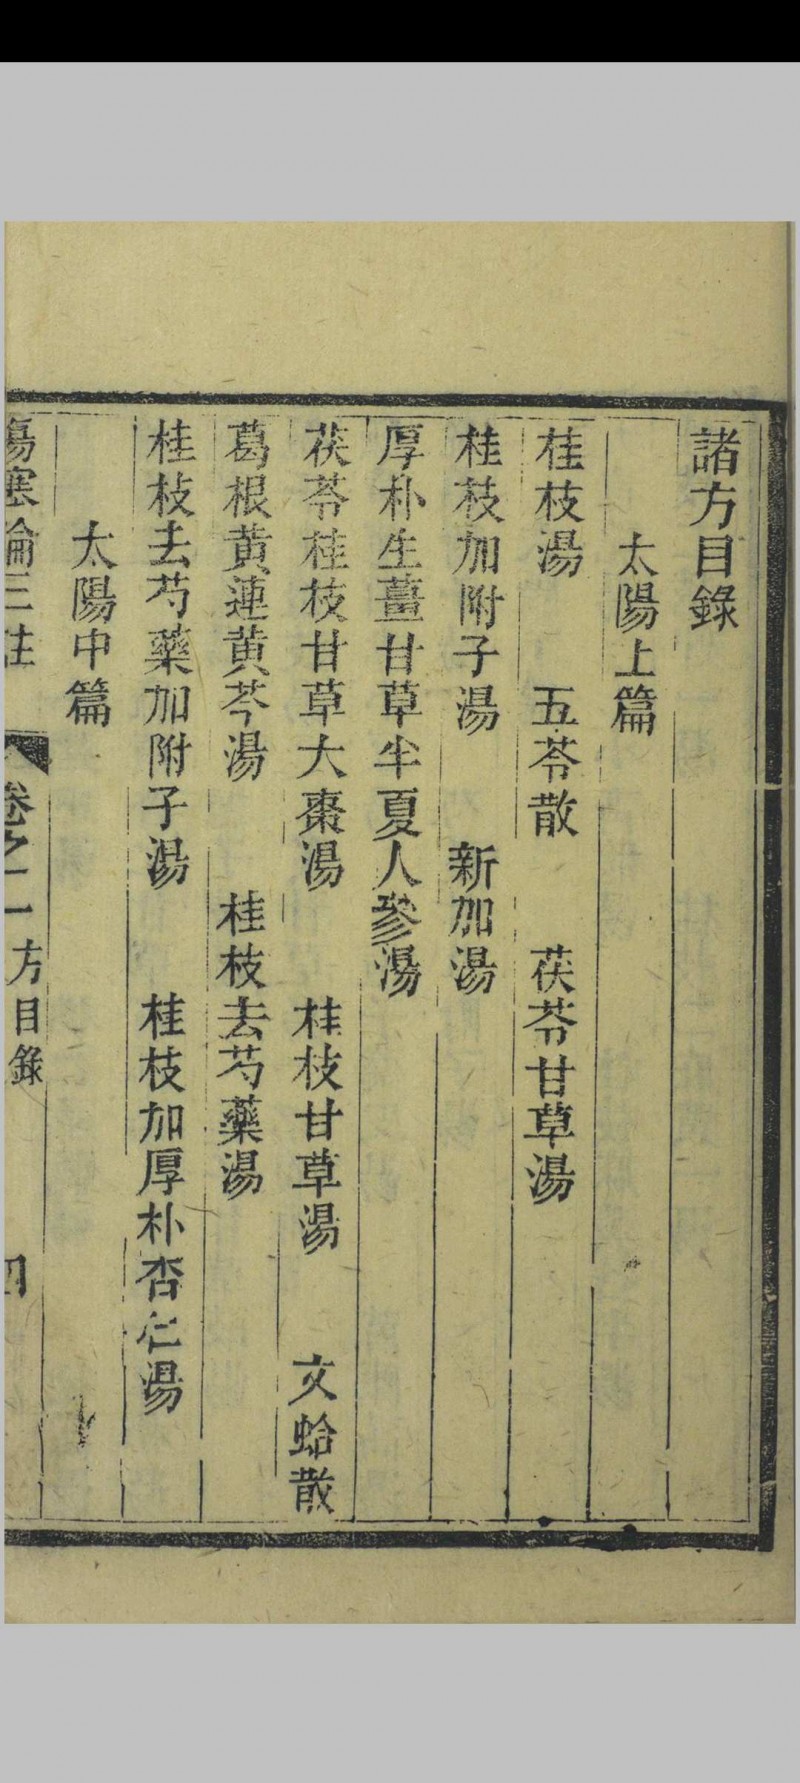 諸方目錄
太陽上篇
桂枝湯 五苓散 茯苓甘草湯
桂枝加附子湯 新加湯
厚朴生薑甘草半夏人參湯
茯苓桂枝甘草大棗湯 桂枝甘草湯 文蛤散
葛根黃連黃芩湯 桂枝去芍藥湯
桂枝去芍藥加附子湯 桂枝加厚朴杏仁湯
太陽中篇
傷寒論三註 卷之二 方目錄 四